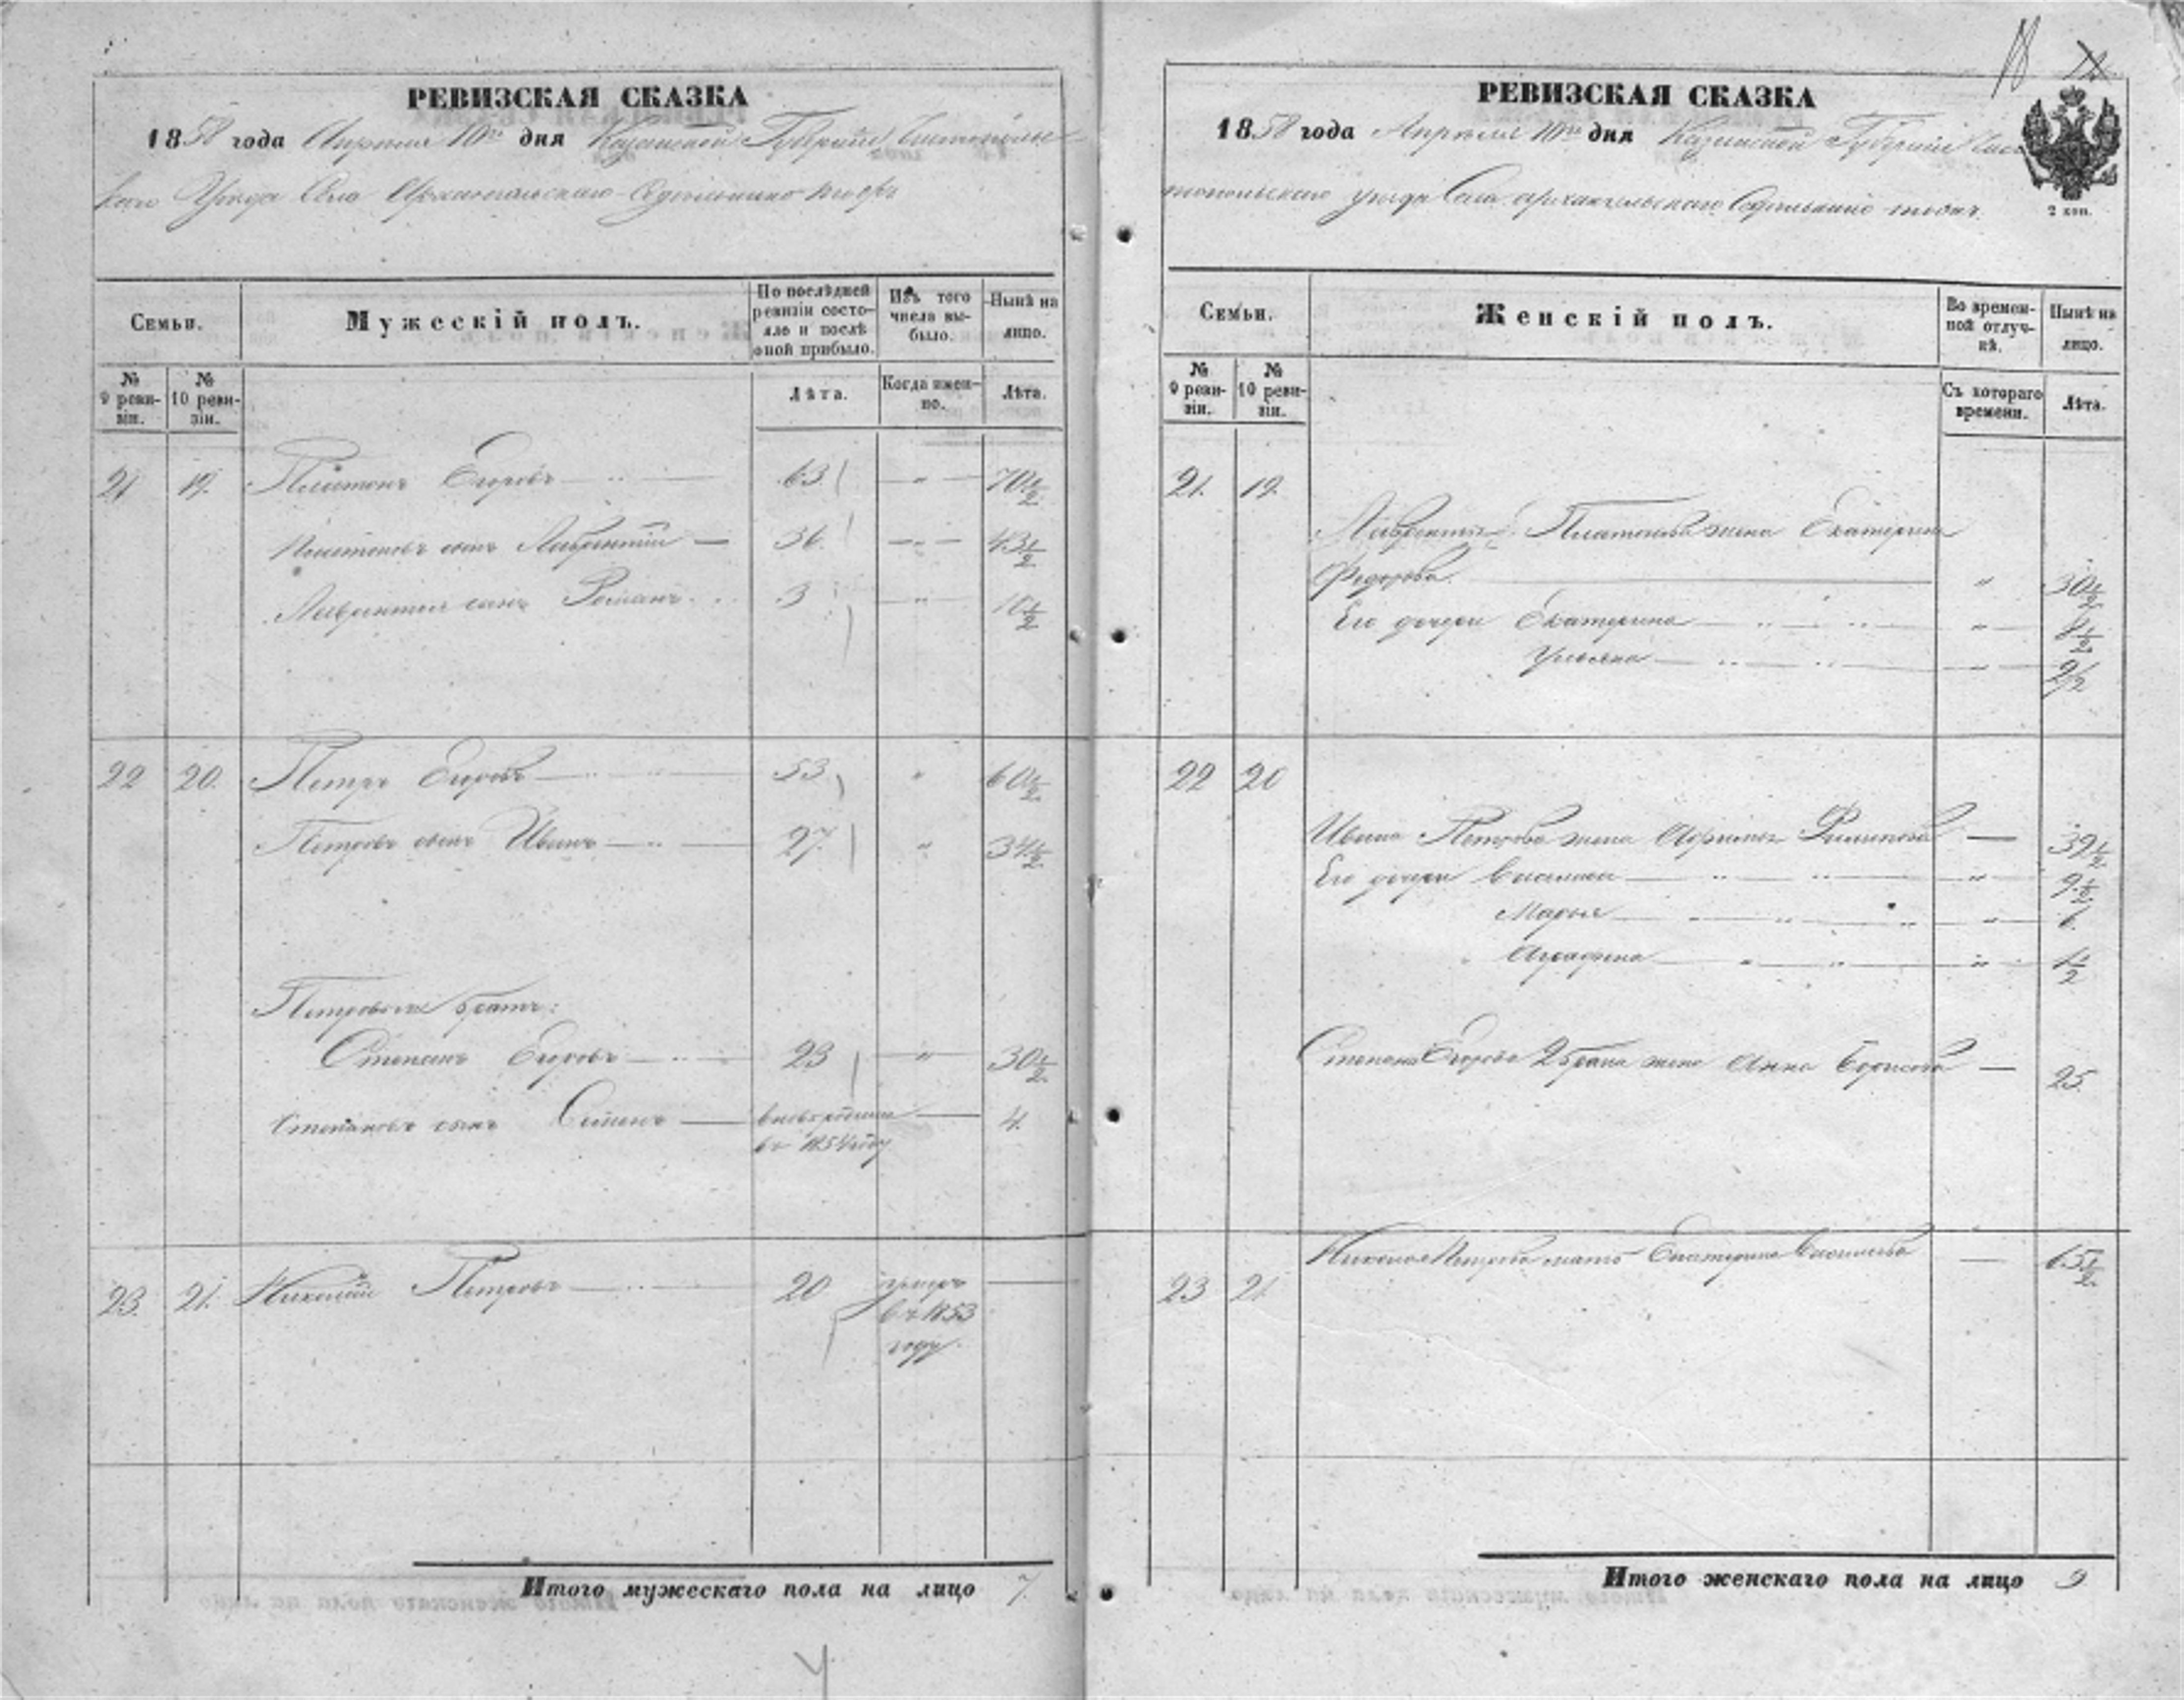 РЕВИЗСКАЯ СКАЗКА
1858 года Апреля 10го дня Казанской Губернии Чистополь
скаго Уезда Села Архангельскаго
Семьи.
Мужескій полъ.
По послѣдней ревизіи состояло и послѣ оной прибыло.
Изъ того числа выбыло.
Нынѣ на лицо.
№ 9 ревизіи.
№ 10 ревизіи.
Лѣта.
Когда именно.
Лѣта.
21 19. Платонъ Егоровъ 63 " 70 1/2
Платоновъ сынъ Лаврентий 36. " 43 1/2
Лаврентия сынъ Романъ 3 " 10 1/2
22 20. Петръ Егоровъ 53 " 60 1/2
Петровъ сынъ Иванъ 27. " 34 1/2
братъ:
Степанъ Егоровъ 23 " 30 1/2
Степановъ сынъ вновь рожденъ 4.
въ 1854 году
23. 21. Николай Петровъ 20
въ 1853
году.
Итого мужескаго пола на лицо 7.
РЕВИЗСКАЯ СКАЗКА
1858 года Апреля 10го дня Казанской Губернии Чис
топольскаго уезда Села архангельскаго
2 коп.
18
Семьи.
Женскій полъ.
Во временной отлучкѣ.
Нынѣ на лицо.
№ 9 ревизіи.
№ 10 ревизіи.
Съ котораго времени.
Лѣта.
21. 19.
Лаврентия Платонова жена Екатерина
Федорова. " 30 1/2
Его дочери Екатерина " 8 1/2
Ульяна " 2 1/2
22 20
Ивана Петрова жена Филипова 39 1/2
Его дочери " 9 1/2
Марья " 6.
Аграфена " 1/2
Степана Егорова 2 брака жена Анна Борисова 25.
23 21. Николая Петрова мать Екатерина Васильева 65 1/2
Итого женскаго пола на лицо 9